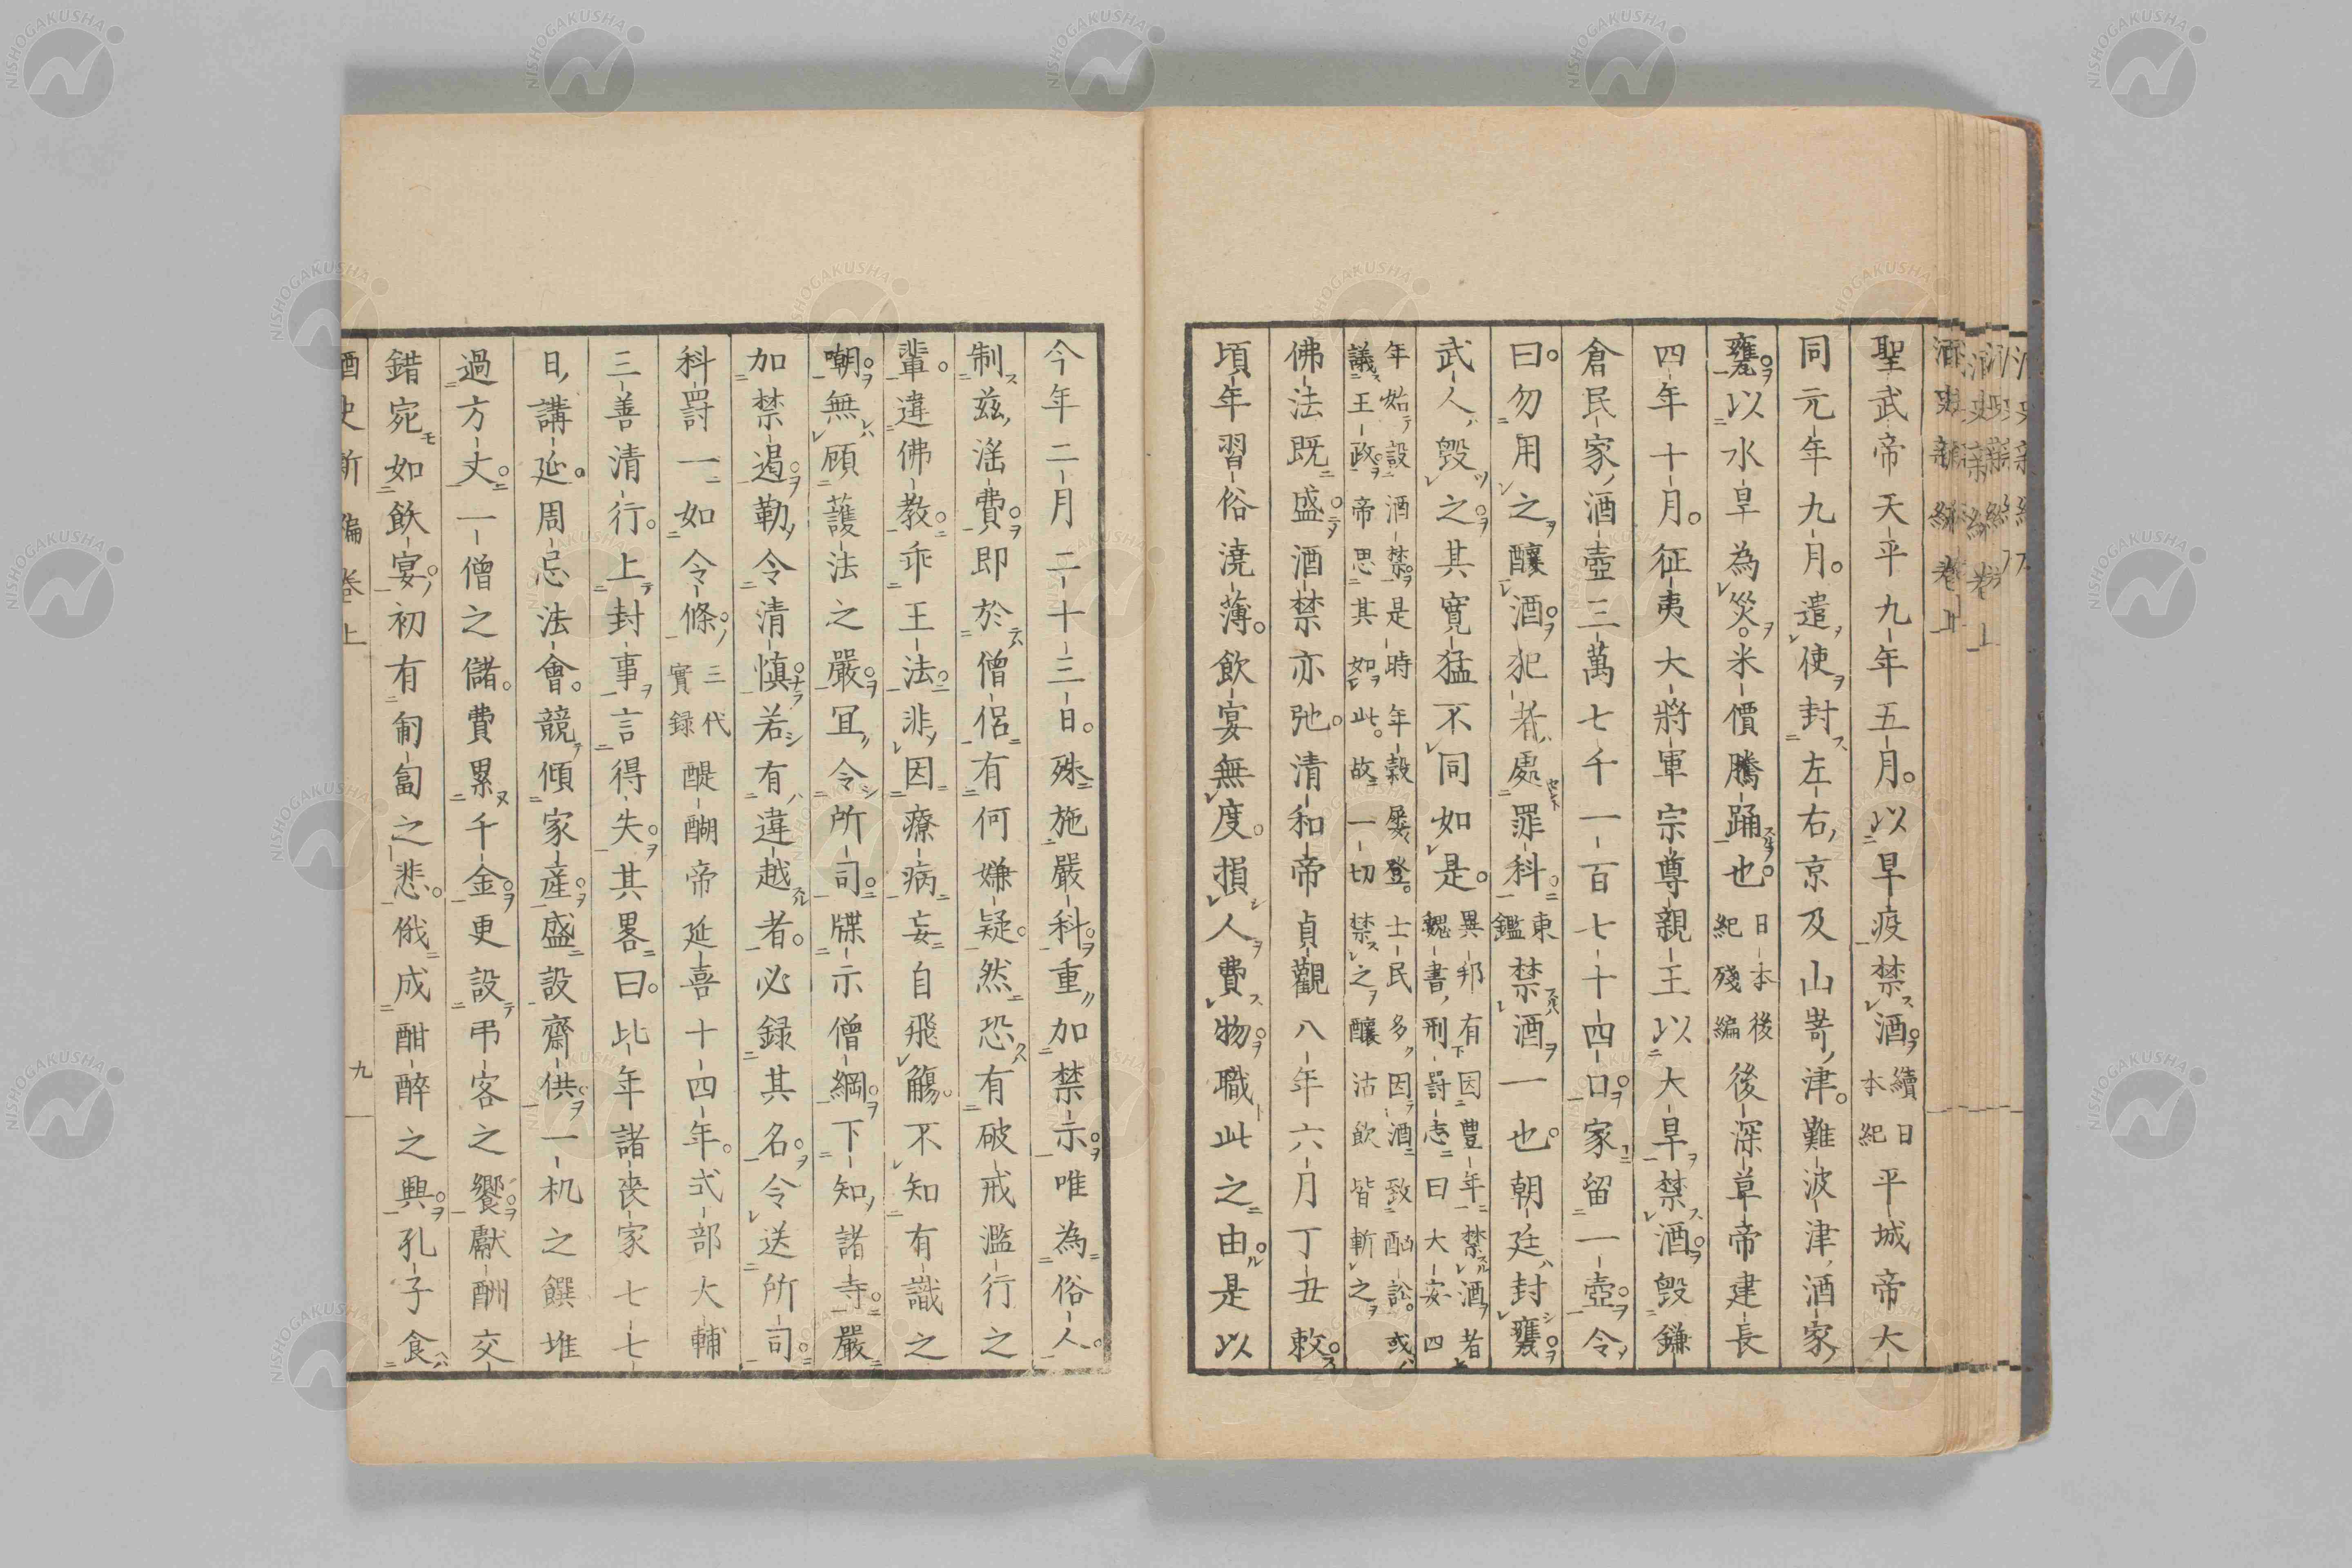 聖武帝天平九年五月。以旱疫禁酒。續日本紀平城帝大
同元年九月。遣使封左右京及山嵜津。難波津酒家
甕。以水旱為災。米價騰踊也。日本後紀殘編後深草帝建長
四年十月。征夷大將軍宗尊親王以大旱禁酒。毀鎌
倉民家酒壺三萬七千一百七十四口。家留一壺。令
曰。勿用之釀酒。犯者處罪科。東鑑禁酒一也。朝廷封甕。
武人毀之。其寛猛不同如是。異邦有因豊年禁酒者魏書刑罸志曰大安四
年始設酒禁。是時年穀屡登。士民多因酒致酗訟。或議王政。帝思其如此。故一切禁之釀沽飲皆斬之
佛法既盛。酒禁亦弛。清和帝貞觀八年六月丁丑敕。
頃年習俗澆薄。飲宴無度。損人費物。職此之由。是以
今年二月二十三日。殊施嚴科。重加禁示。唯為俗人。
制茲滛費。即於僧侶有何嫌疑。然恐有破戒濫行之
輩。違佛教。乖王法。非因療病妄自飛觴。不知有識之
嘲。無顧護法之嚴。冝令所司。牒示僧綱。下知諸寺。嚴
加禁遏。勒令清慎。若有違越者。必録其名。令送所司。
科罸一如令條。三代實録醍醐帝延喜十四年。式部大輔
三善清行。上封事言得失。其畧曰。比年諸喪家七七
日講延。周忌法會。競傾家産。盛設齋供。一机之饌堆
過方丈。一僧之儲。費累千金。更設弔客之饗。獻酬交
錯宛如飲宴。初有匍匐之悲。俄成酣醉之興。孔子食
酒史新編卷上 九
酒史新編卷上
NISHOGAKUSHA